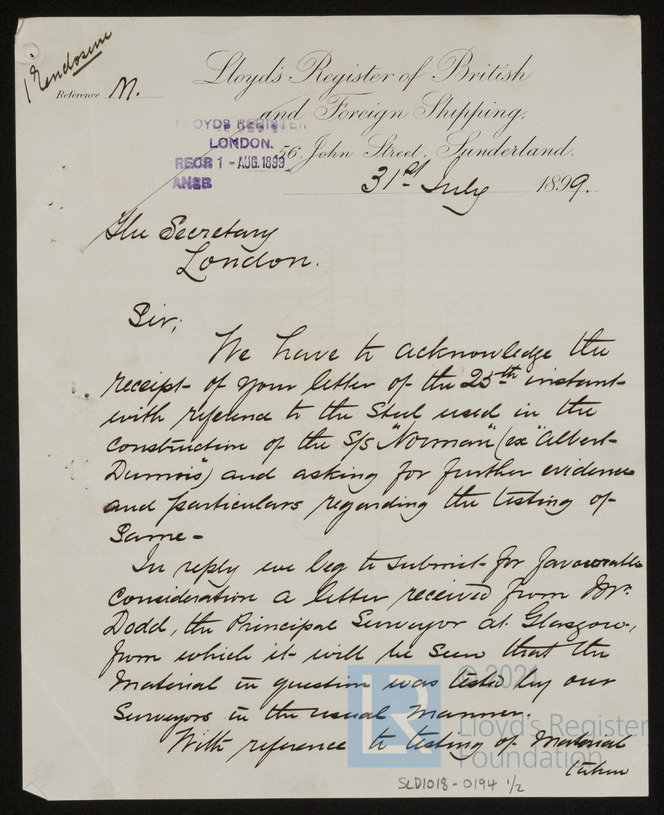 1 Enclosure
Reference M.
Lloyd's Register of British
and Foreign Shipping,
LLOYDS REGISTER
LONDON.
RECD 1 - AUG. 1899
ANSD
56, John Street, Sunderland.
31st July 1899.
The Secretary
London.
Sir;
We have to acknowledge the
receipt of your letter of the 25th instant
with reference to the Steel used in the
construction of the S/s "Norman" (ex "Albert
Dumois") and asking for further evidence
and particulars regarding the testing of
Same -
In reply we beg to submit for favourable
consideration a letter received from Mr.
Dodd, the Principal Surveyor at Glasgow,
from which it will be seen that the
Material in question was tested by our
Surveyors in the usual manner.
With reference to testing of Material
taken
© 2021
LR
Lloyd's Register
Foundation
SLD1018-0194 1/2